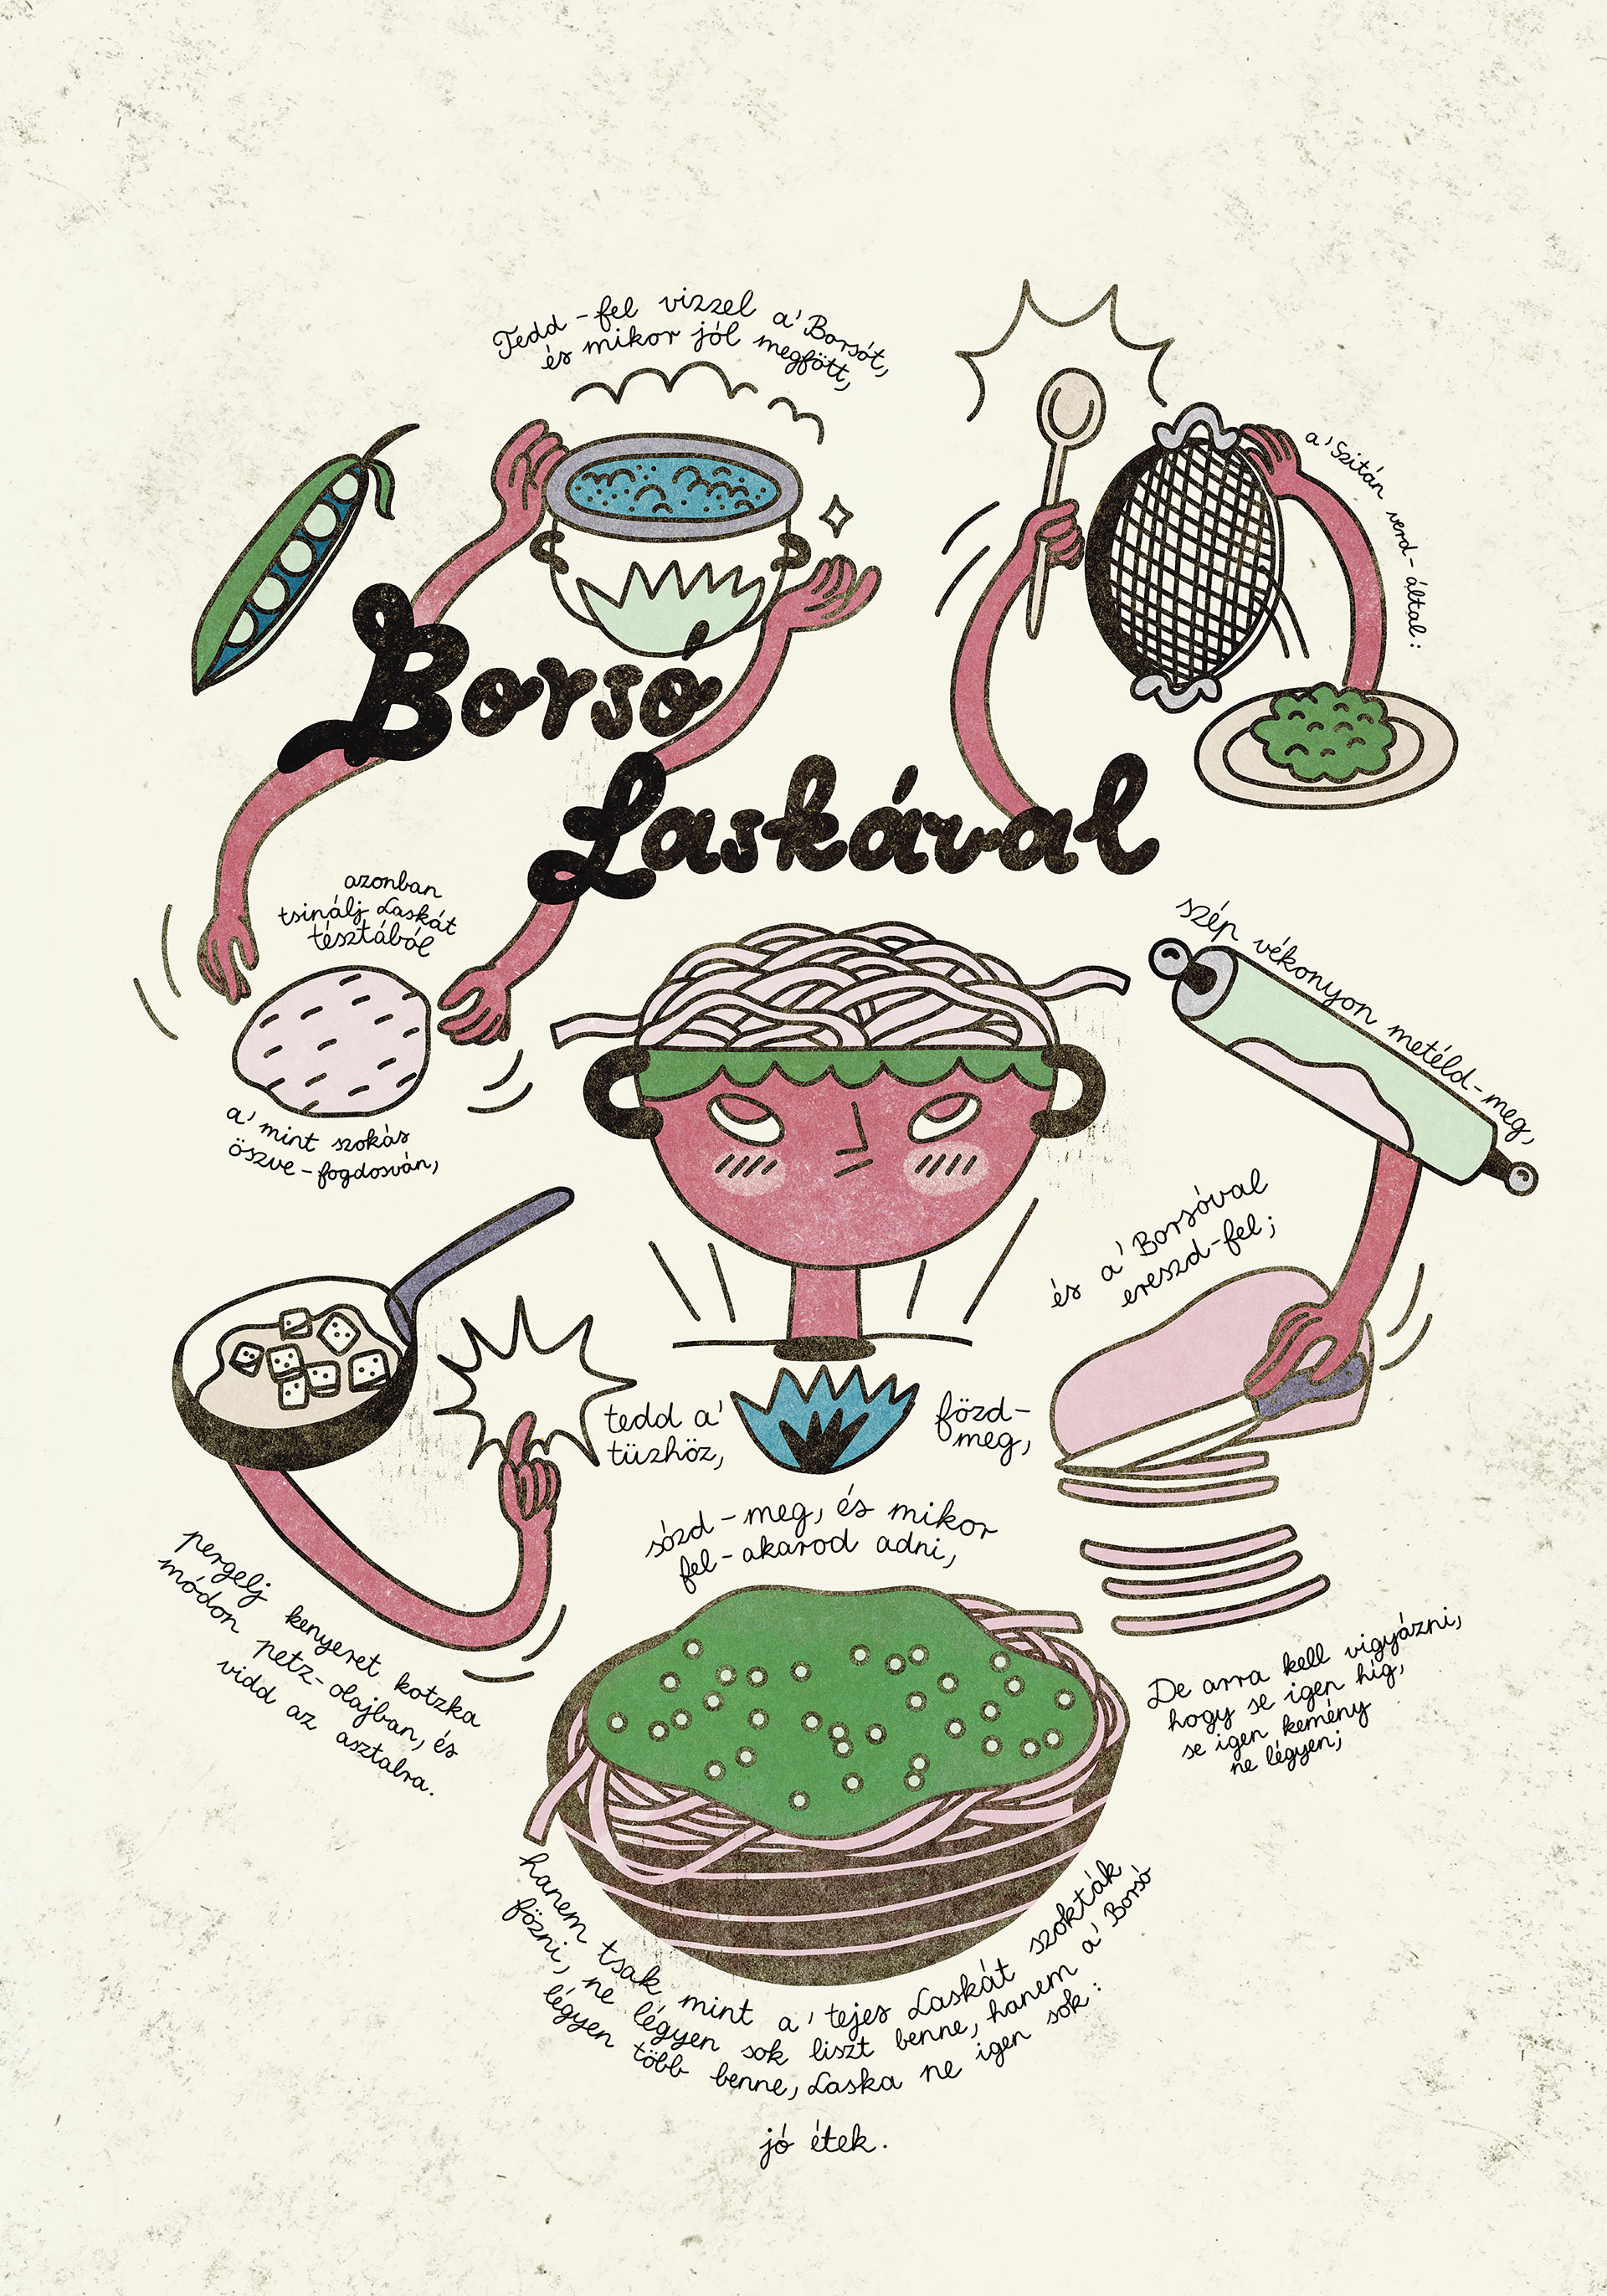 Tedd-fel vizzel a' Borsót,
és mikor jól megfött,
a' Szitán verd-által:
Borsó
Laskával
azonban
tsinálj Laskát
tésztából
a' mint szokás
öszve-fogdosván,
szép vékonyon metéld-meg,
és a' Borsóval
ereszd-fel;
tedd a'
tüzhöz,
fözd-
meg,
sózd-meg, és mikor
fel-akarod adni,
pergelj kenyeret kotzka
módon petz-olajban, és
vidd az asztalra.
De arra kell vigyázni,
hogy se igen híg,
se igen kemény
ne légyen;
hanem tsak mint a' tejes Laskát szokták
fözni, ne légyen sok liszt benne, hanem a' Borsó
légyen több benne, Laska ne igen sok:
jó étek.